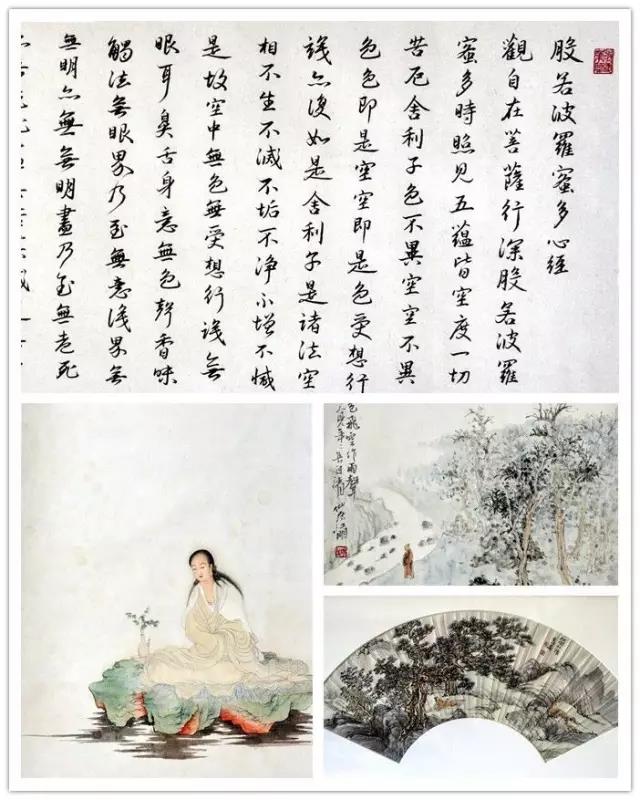 般若波羅蜜多心經
觀自在菩薩行深般若波羅
蜜多時照見五蘊皆空度一切
苦厄舍利子色不異空空不異
色色即是空空即是色受想行
識亦復如是舍利子是諸法空
相不生不滅不垢不净不增不減
是故空中無色無受想行識無
眼耳鼻舌身意無色聲香味
觸法無眼界乃至無意識界無
無明亦無無明盡乃至無老死
色飛空作雨聲